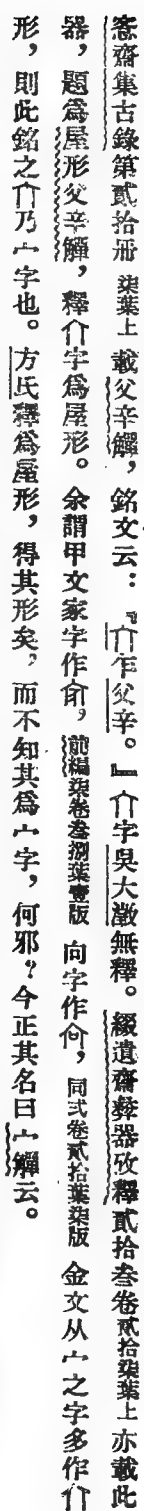 愙齋集古錄第貳拾册柒葉上載父辛觶，銘文云：『宀乍父辛。』宀字吳大澂無釋。綴遺齋彝器攷釋貳拾叁卷貳拾柒葉上亦載此
器，題爲屋形父辛觶，釋宀字爲屋形。余謂甲文家字作，前編柒卷叁捌葉壹版向字作，同弍卷貳拾葉柒版金文从宀之字多作
形，則此銘之乃宀字也。方氏釋爲屋形，得其形矣，而不知其爲宀字，何邪？今正其名曰宀觶云。